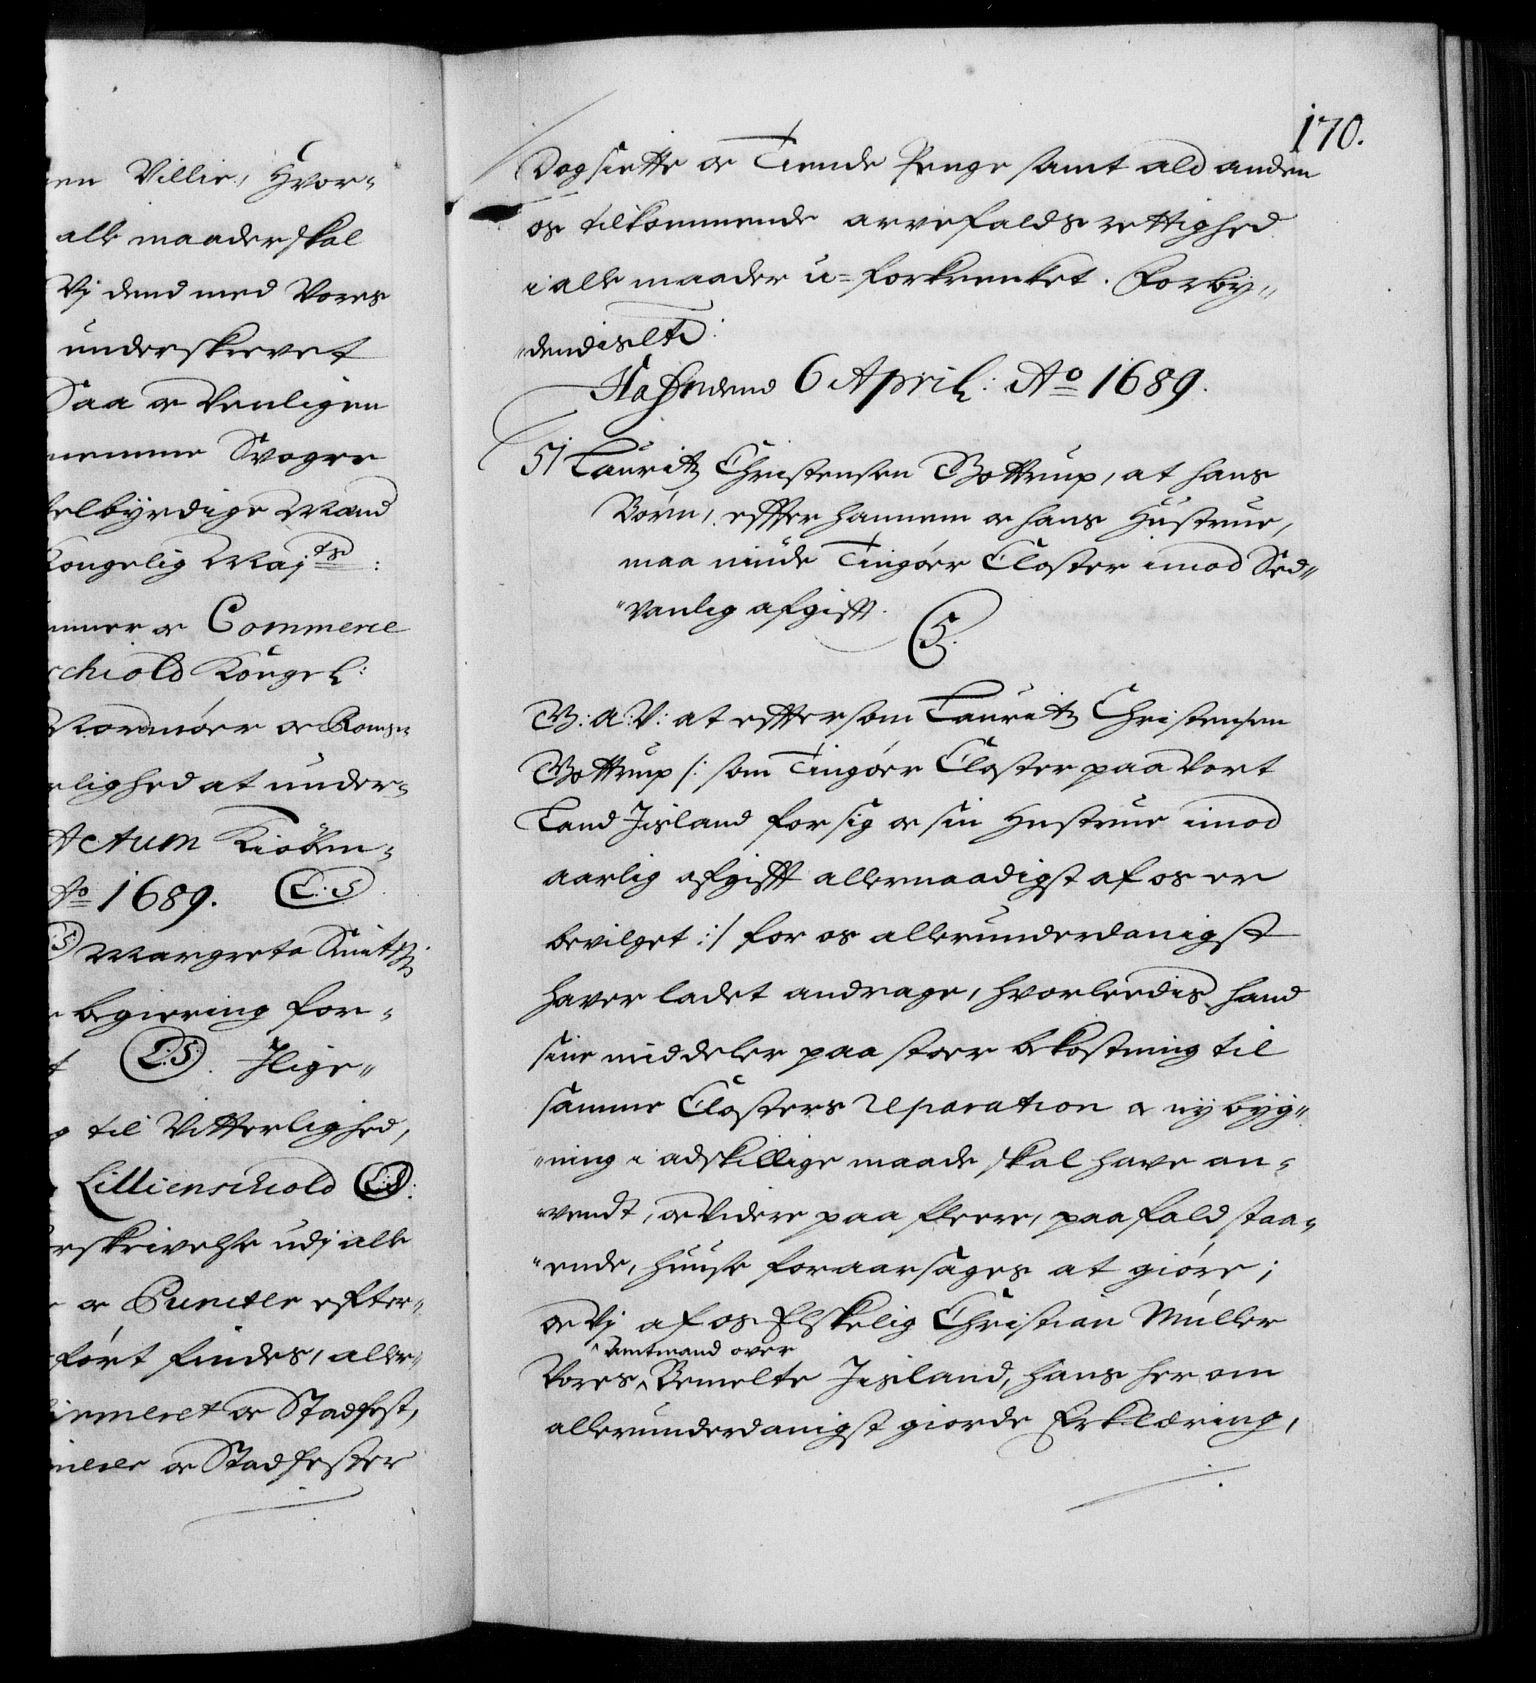 en Villie, Hvor-
alle maader skal
Vj dend med Vores
underskrevet
Saa er venligen
nemme Svoger
elbyrdige Mand
Kongelig Maj^ts:
mmer og Commerce
schiold Kongel:
Nordmöer og Roms
rlighed at under-
Actum Kiöben-
Ao 1689. L.S.
Margrete
begiering for-
L.S. Ilige-
til Vitterlighed,
Lillienschiold L.S.
rskrivelse udj alle
er Puncter efter-
fört findes, aller-
firmeret og Stadfest,
merer og Stadfester
170.
Dog siette og Tiende Penge samt ald anden
os tilkommende arvefalds rettighed
i alle maader u=forkrenket. Forby-
dendis etc:
Hafn dend 6 April: Ao 1689.
51 Lauritz Christensen Gottrup, at hans
Börn, effter hannem og hans Hustrue,
maa niude Tingöer Closter imod Sed-
vanlig afgifft.
C5.
G: A: V: at eftersom Lauritz Christensen
Gottrup /: som Tingöer Closter paa Vort
Land Jisland for sig og sin Hustrue imod
aarlig afgifft allernaadigst af os er
bevilget :/ for os allerunderdanigst
haver ladet andrage, hvorleedis hand
sine middeler paa stoer bekostning til
samme Closters Reparation og ny byg-
ning i adskillige maade skal have an-
vendt, og videre paa fleere, paa fald staa-
ende, huuse foraarsages at giöre;
og Vj af os Elskelig Christian Müller
Amtmand over
Vores Bemelte Jisland, hans her om
allerunderdanigst giorde Erklæring,